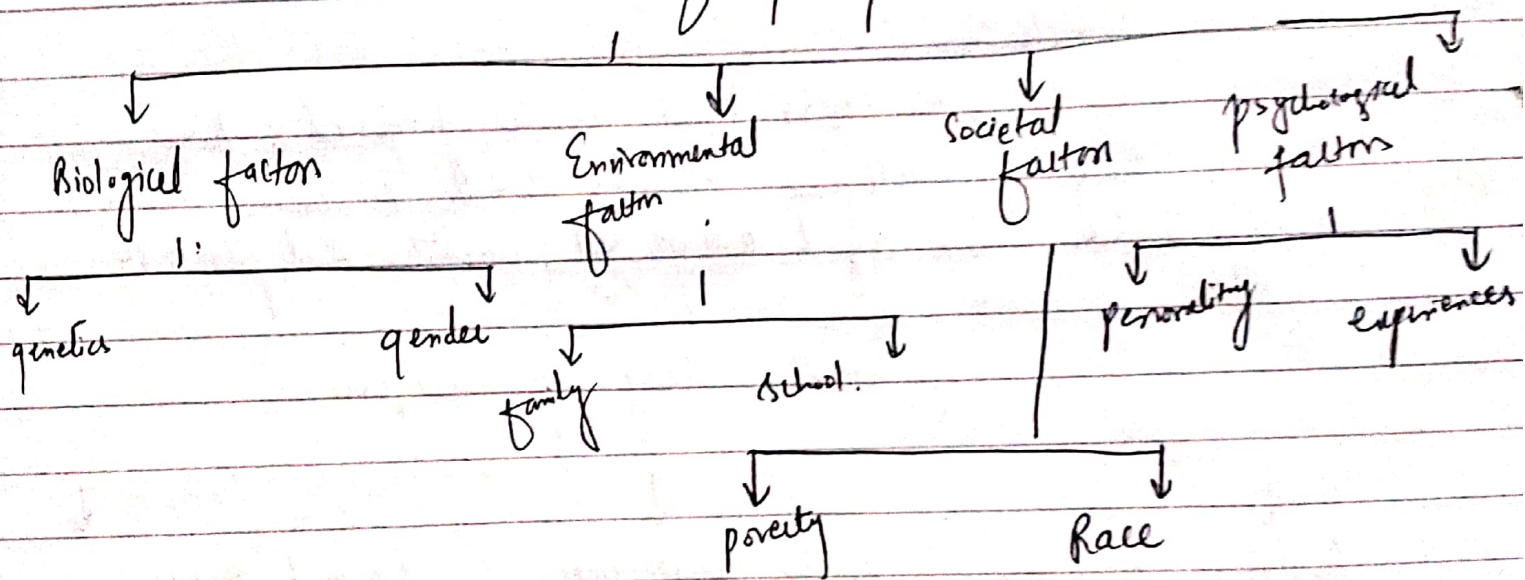 Biological factors
Environmental
factors
Societal
factors
psychological
factors
genetics
gender
family
school.
personality
experiences
poverty
Race